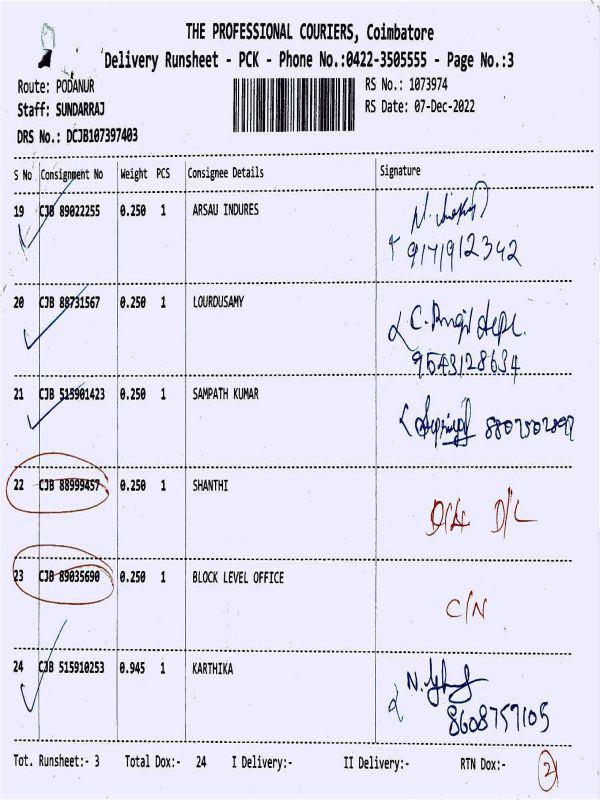 THE PROFESSIONAL COURIERS, Coimbatore
Delivery Runsheet - PCK - Phone No.:0422-3505555 - Page No.:3
Route: PODANUR
RS No.: 1073974
Staff: SUNDARRAJ
RS Date: 07-Dec-2022
DRS No.: DCJB107397403
S No Consignment No Weight PCS Consignee Details Signature
19 CJB 89022255 0.250 1 ARSAU INDURES
9171912342
20 CJB 88731567 0.250 1 LOURDUSAMY
9543128634
21 CJB 515901423 0.250 1 SAMPATH KUMAR
22 CJB 88999457 0.250 1 SHANTHI
D/L
23 CJB 89035690 0.250 1 BLOCK LEVEL OFFICE
C/N
24 CJB 515910253 0.945 1 KARTHIKA
8608757105
Tot. Runsheet:- 3 Total Dox:- 24 I Delivery:- II Delivery:- RTN Dox:- 2